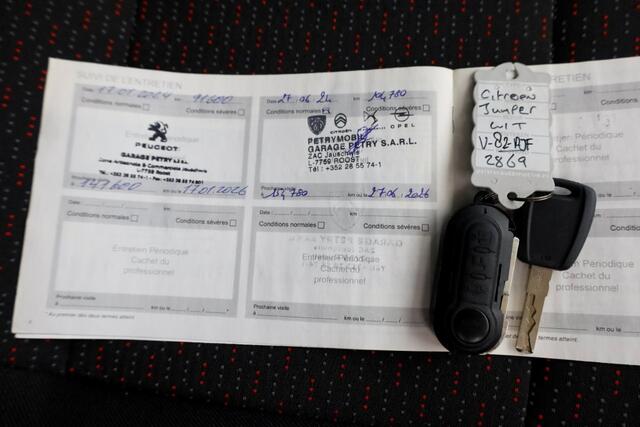 SUIVI DE L'ENTRETIEN
17.01.2024 km 91600
Conditions normales Conditions sévères
PEUGEOT
GARAGE PETRY S.A.R.L.
L-7759 ROOST
Prochaine visite
à 147.600 km ou le 17.01.2026
27.06.24 km 104.780
Conditions normales Conditions sévères
CITROËN OPEL
PETRYMOBIL
GARAGE PETRY S.A.R.L.
ZAC Jauschwis
L-7759 ROOST
Tél : +352 28 55 74-1
Prochaine visite
154.780 km ou le 27.06.2026
Citroën
Jumper
WIT
V-82-RJF
2869
ENTRETIEN
Entretien Périodique
Cachet du
professionnel
Date / / km
Conditions normales Conditions sévères
Entretien Périodique
Cachet du
professionnel
Prochaine visite
à km ou le / /
Date / / km
Conditions normales Conditions sévères
Entretien Périodique
Cachet du
professionnel
Prochaine visite
à km ou le / /
Conditions sévères
Entretien Périodique
Cachet du
professionnel
km ou le / /
* Au premier des deux termes atteint.